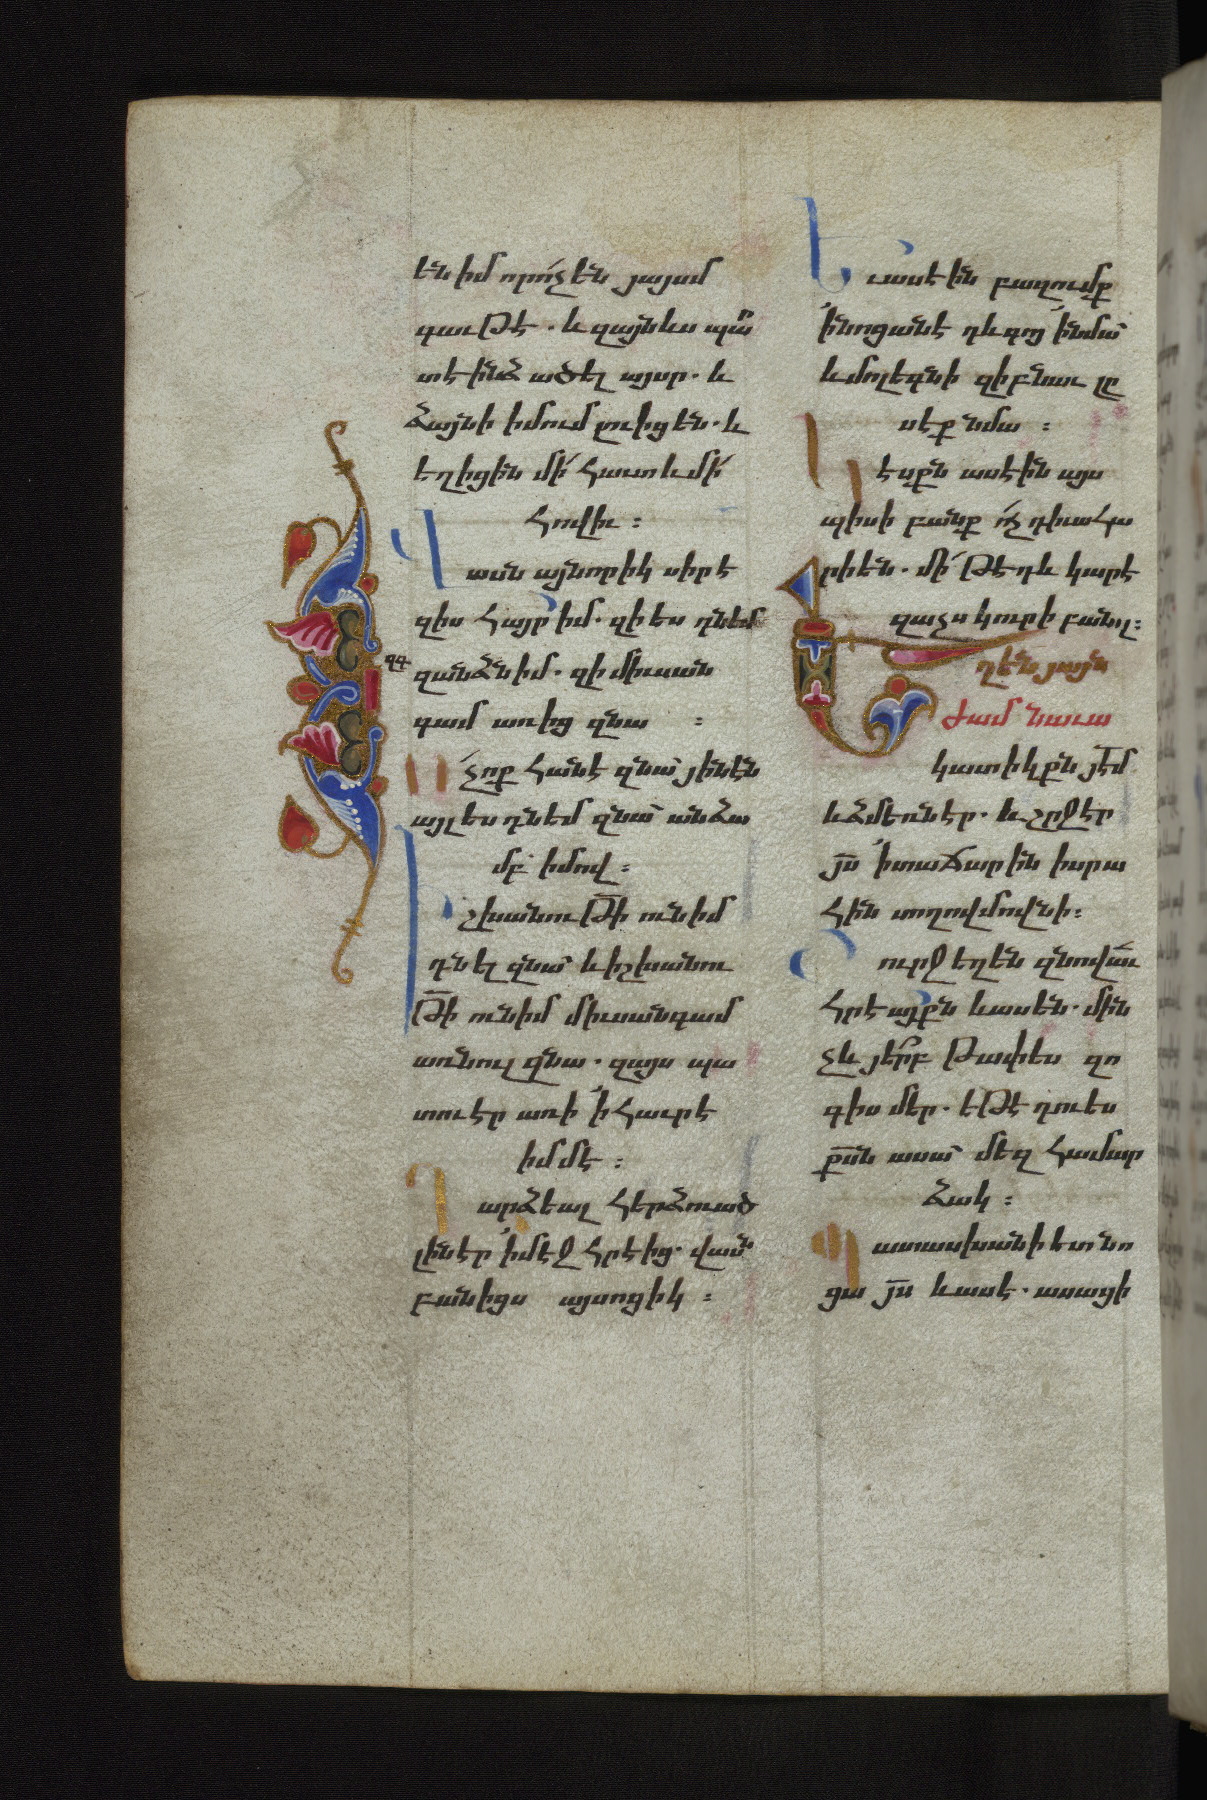 են իմ որո՛չ են յայսմ
գաւԹէ . և զայնևս պա՟
տէ ինձ ածել այսր . և
ձայնի իմում լուիցեն . և
եղիցին մի՛ հաւտ և մի՛
հովիւ :
Վասն այնորիկ սիրէ
զիս հայր իմ . զի ես դնեմ
զանձն իմ . զի միւսան
գամ առից զնա :
Ո՛չ ոք հանէ զնա՛ յինէն
այլ ես դնեմ զնա՛ անձա
մբ իմով :
ԻշխանուԹի՟ ունիմ
դնել զնա՛ և իշխանու
Թի՟ ունիմ միւսանգամ
առնուլ զնա . զայս պա
տուէր առի ՛ի հաւրէ
իմմէ :
Դարձեալ հերձուած
լինէր ՛ի մէջ հրէից . վասն
բանիցս այսոցիկ :
Եւ ասէին բազումք
՛ի նոցանէ դև գոյ ՛ի նմա՛
և մոլեգնի զի բնաւ լը
սէք նմա :
Կէսքն ասէին այս
պիսի բանք ո՛չ դիւահա
րի են . մի՛ Թէ դև կարէ
զաչս կուրի բանալ :
Եղեն յայն
ժամ նաւա
կատիկքն յէ՟մ
և ձմեռն էր . և շրջէր
յս՟ ՛ի տաճարին ի սրա
հին սողովմովնի :
Շուրջ եղեն զնովաւ
հրեայքն և ասեն . մին
չև յե՞րբ Թափես զո
գիս մեր . եԹէ դու ես
քս՟ն ասա՛ մեզ համար
ձակ :
Պատասխանի ետ նո
ցա յս՟ և ասէ . ասացի